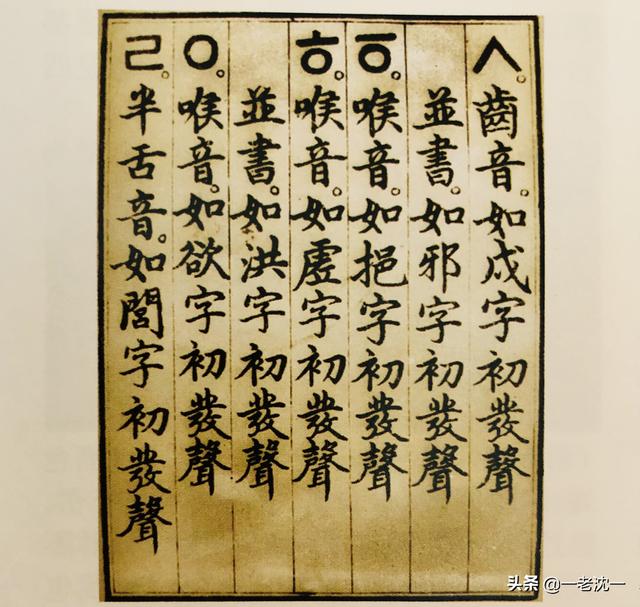 ㅅ。齒音。如戌字初發聲
並書。如邪字初發聲
ㆆ。喉音。如挹字初發聲
ㅎ。喉音。如虛字初發聲
並書。如洪字初發聲
ㅇ。喉音。如欲字初發聲
ㄹ。半舌音。如閭字初發聲
头条 @一老沈一